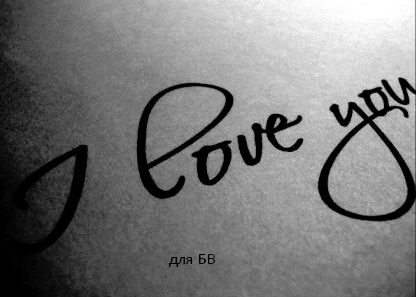 I love you
для БВ